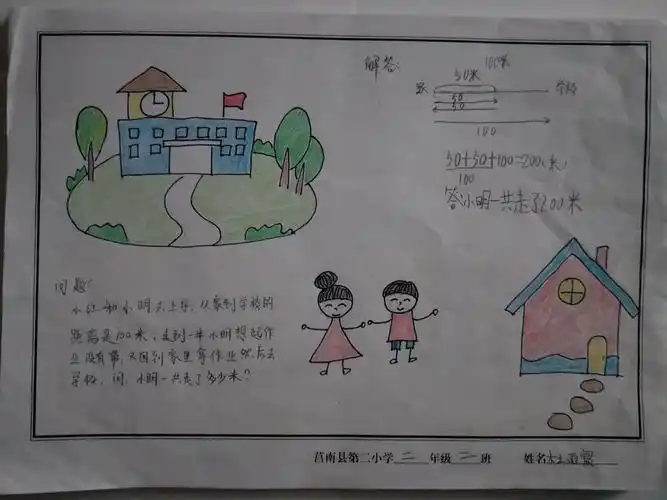 解答：
100米
50米
家 学校
50
50
100
50+50+100=200(米)
100
答：小明一共走了200米
问题：
小红和小明去上学，从家到学校的
距离是100米，走到一半小明想起作
业没有带，又回到家里拿作业然后去
学校，问：小明一共走了多少米？
莒南县第二小学 二 年级 二 班 姓名